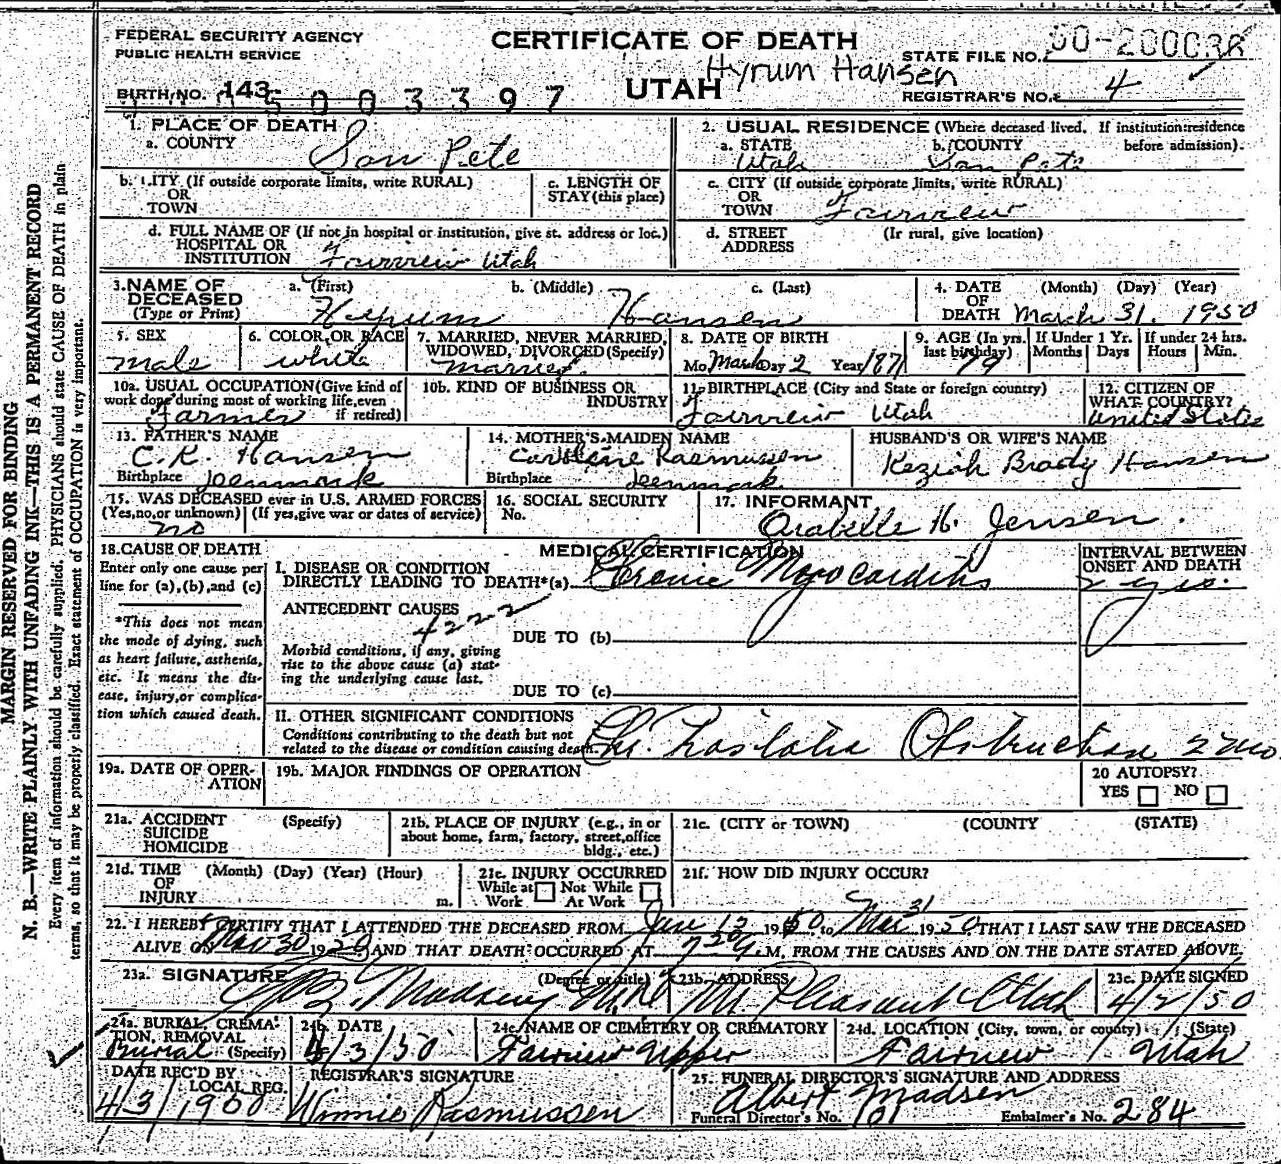 FEDERAL SECURITY AGENCY
PUBLIC HEALTH SERVICE
CERTIFICATE OF DEATH
Hyrum Hansen
UTAH
STATE FILE NO.
REGISTRAR'S NO. 4
BIRTH NO. 143
5 0 0 3 3 9 7
MARGIN RESERVED FOR BINDING
N. B.—WRITE PLAINLY WITH UNFADING INK—THIS IS A PERMANENT RECORD
Every item of information should be carefully supplied. PHYSICIANS should state CAUSE OF DEATH in plain
terms, so that it may be properly classified. Exact statement of OCCUPATION is very important.
1. PLACE OF DEATH
a. COUNTY San Pete
2. USUAL RESIDENCE (Where deceased lived. If institution: residence before admission).
a. STATE Utah
b. COUNTY San Pete
b. CITY (If outside corporate limits, write RURAL)
OR
TOWN
c. LENGTH OF STAY (this place)
c. CITY (If outside corporate limits, write RURAL)
OR
TOWN Fairview
d. FULL NAME OF (If not in hospital or institution, give st. address or loc.)
HOSPITAL OR
INSTITUTION Fairview Utah
d. STREET ADDRESS (If rural, give location)
3. NAME OF DECEASED (Type or Print)
a. (First) b. (Middle) c. (Last)
Hyrum Hansen
4. DATE OF DEATH (Month) (Day) (Year)
March 31. 1950
5. SEX
male
6. COLOR OR RACE
white
7. MARRIED, NEVER MARRIED, WIDOWED, DIVORCED (Specify)
married
8. DATE OF BIRTH
Mo. March Day 2 Year 1871
9. AGE (In yrs. last birthday) 79
If Under 1 Yr. Months Days
If under 24 hrs. Hours Min.
10a. USUAL OCCUPATION (Give kind of work done during most of working life, even if retired)
Farmer
10b. KIND OF BUSINESS OR INDUSTRY
11. BIRTHPLACE (City and State or foreign country)
Fairview Utah
12. CITIZEN OF WHAT COUNTRY?
United States
13. FATHER'S NAME
C. K. Hansen
Birthplace Denmark
14. MOTHER'S MAIDEN NAME
Caroline Rasmussen
Birthplace Denmark
HUSBAND'S OR WIFE'S NAME
Keziah Brady Hansen
15. WAS DECEASED ever in U.S. ARMED FORCES
(Yes, no, or unknown) (If yes, give war or dates of service)
no
16. SOCIAL SECURITY No.
17. INFORMANT
Arabelle H. Jensen.
18. CAUSE OF DEATH
Enter only one cause per line for (a), (b), and (c)
*This does not mean the mode of dying, such as heart failure, asthenia, etc. It means the disease, injury, or complication which caused death.
MEDICAL CERTIFICATION
I. DISEASE OR CONDITION
DIRECTLY LEADING TO DEATH*(a) Chronic Myocarditis
INTERVAL BETWEEN ONSET AND DEATH
2 yrs.
ANTECEDENT CAUSES
4222
DUE TO (b)
Morbid conditions, if any, giving rise to the above cause (a) stating the underlying cause last.
DUE TO (c)
II. OTHER SIGNIFICANT CONDITIONS
Conditions contributing to the death but not related to the disease or condition causing death.
Obstruction 2 mo.
19a. DATE OF OPERATION
19b. MAJOR FINDINGS OF OPERATION
20 AUTOPSY?
YES NO
21a. ACCIDENT SUICIDE HOMICIDE (Specify)
21b. PLACE OF INJURY (e.g., in or about home, farm, factory, street, office bldg., etc.)
21c. (CITY or TOWN) (COUNTY) (STATE)
21d. TIME OF INJURY (Month) (Day) (Year) (Hour) m.
21e. INJURY OCCURRED
While at Work Not While At Work
21f. HOW DID INJURY OCCUR?
22. I HEREBY CERTIFY THAT I ATTENDED THE DECEASED FROM Jan 12 1950 to Mar 31 1950 THAT I LAST SAW THE DECEASED
ALIVE ON Mar 30 1950 AND THAT DEATH OCCURRED AT M. FROM THE CAUSES AND ON THE DATE STATED ABOVE.
23a. SIGNATURE (Degree or title)
Madsen M.D.
23b. ADDRESS
Mt. Pleasant Utah
23c. DATE SIGNED
4/2/50
24a. BURIAL, CREMATION, REMOVAL (Specify)
Burial
24b. DATE
4/3/50
24c. NAME OF CEMETERY OR CREMATORY
Fairview Upper
24d. LOCATION (City, town, or county) (State)
Fairview Utah
DATE REC'D BY LOCAL REG.
4/3/1950
REGISTRAR'S SIGNATURE
Winnie Rasmussen
25. FUNERAL DIRECTOR'S SIGNATURE AND ADDRESS
Albert Madsen
Funeral Director's No. 101
Embalmer's No. 284